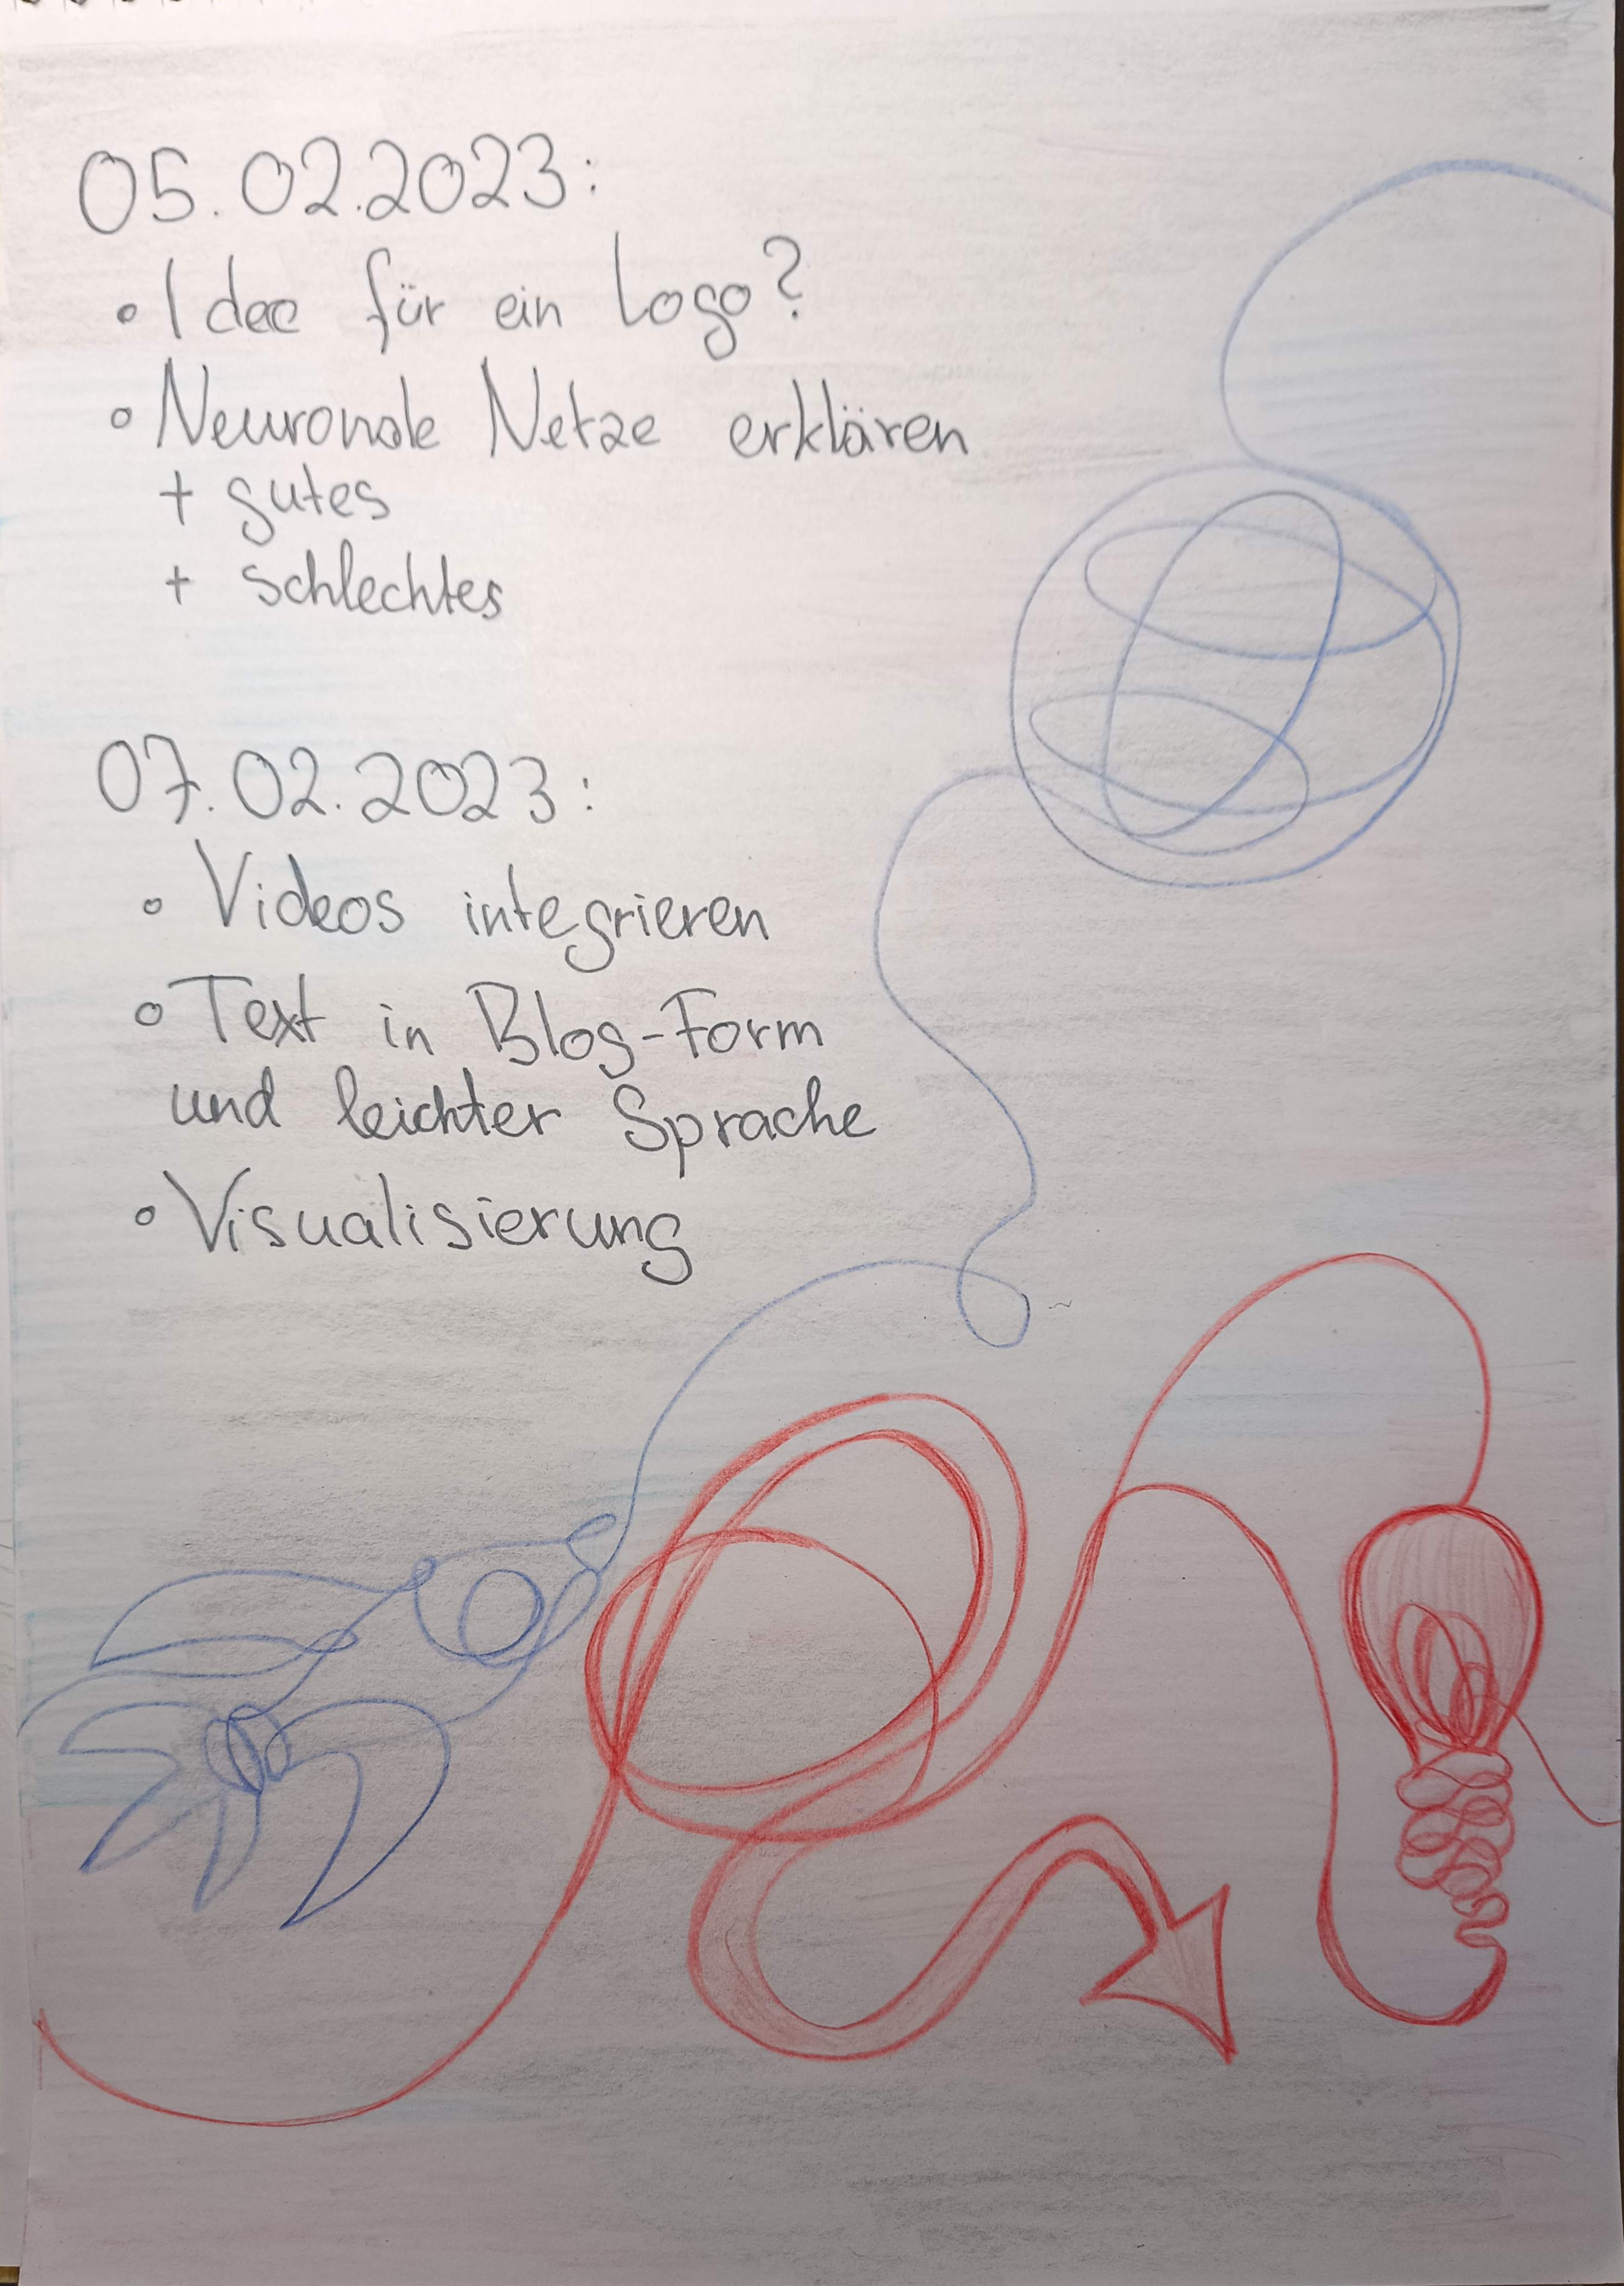 05.02.2023:
• Idee für ein Logo?
• Neuronale Netze erklären
+ gutes
+ schlechtes
07.02.2023:
• Videos integrieren
• Text in Blog-Form
und leichter Sprache
• Visualisierung